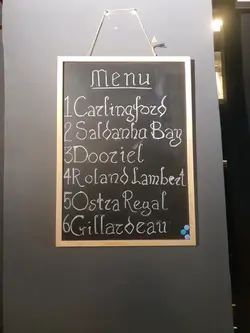 Menu
1 Carlingford
2 Saldanha Bay
3 Dooriel
4 Roland Lambert
5 Ostra Regal
6 Gillardeau